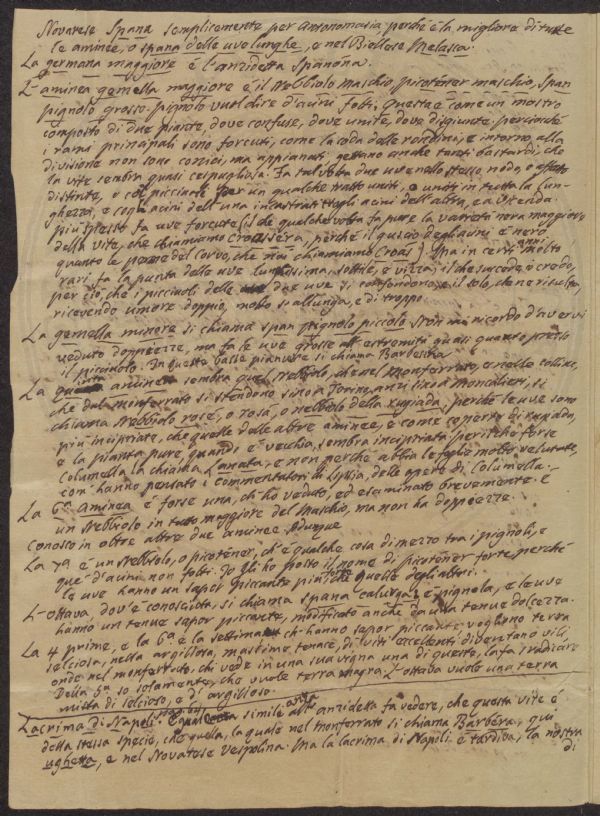 Novarese Spana semplicemente per antonomasia perché è la migliore di tutte
le aminee, o spana delle uve lunghe, e nel Biellese Melasca.
La germana maggiore è l'anzidetta Spanona.
L'aminea gemella maggiore è il Nebbiolo Maschio, picotener maschio, Span
pignolo grosso. pignolo vuol dire d'acini folti. Questa è come un mostro
composto di due piante, dove confuse, dove unite, dove disgiunte, perciocchè
i rami principali sono forcuti, come la coda delle rondini, e intorno alla
divisione non sono conici, ma appianati: gettano anche tanti bastardi, che
la vite sembra quasi cespugliosa. Fa talvolta due uve nello stesso nodo, o affatto
distinte, o coi picciuoli per un qualche tratto uniti, o uniti in tutta la lun-
ghezza, e cogli acini dell'una incastrati tragli acini dell'altra, ea vicenda.
più spesso fa uve forcute (il che qualche volta fa pure la varietà nera maggiore
della vite, che chiamiamo Croassera, perchè il guscio degli acini è nero
quanto le penne del Corvo, che noi chiamiamo Croas) Ma in certi anni molto
rari fa la punta delle uve lunghissima, sottile, e vizza; il che succede, credo,
per ciò, che i picciuoli delle due uve si confondono, e il solo, che ne risulta,
ricevendo umore doppio, molto si allunga, e di troppo
La gemella minore si chiama span pignolo piccolo. Non mi ricordo d'avervi
veduto doppiezze, ma fa le uve grosse all'estremità quasi quanto presso
il picciuolo. In queste basse pianure si chiama Barbesina
La aminea sembra quel Nebbiolo, che nel Monferrato, e nelle colline,
che dal monferrato si stendono sino a Torino, anzi sino a Moncalieri, si
chiama Nebbiolo rosé, o rosa, o nebbiolo della rugiada, perchè le uve sono
più incipriate, che quelle delle altre aminee, e come coperte di rugiada,
e la pianta pure, quando è vecchia, sembra incipriata perilche forse
Columella la chiama Lanata, e non perchè abbia le foglie molto vellutate,
com'hanno pensato i commentatori di Lipsia, delle opere di Columella.
La 6.a aminea è forse una, ch'ho veduto, ed esaminato brevemente. È
un Nebbiolo in tutto maggiore del Maschio, ma non ha doppiezze.
Conosco in oltre altre due aminee. Adunque
La 7.a è un Nebbiolo, o picotener, ch'è qualche cosa di mezzo tra i pignoli, e
que' d'acini non folti. Io gli ho posto il nome di picotener forte, perchè
le uve hanno un sapor piccante più forte quelle degli altri.
L'ottava, dov'è conosciuta, si chiama spana caluga, e pignola, e le uve
hanno un tenue sapor piccante, modificato anche da una tenue dolcezza.
La 4 prime, e la 6.a e la settima ch'hanno sapor piccante, vogliono terra
selciosa, nella argillosa, massime tenace, di viti eccellenti diventano vili,
onde nel monferrato, chi vede in una sua vigna una di queste, la fa sradicare
Della 5.a so solamente, che vuole terra magra. L'ottava vuole una terra
mista di selcioso, e d'argilloso.
Lacrima di Napoli. simile all'anzidetta fa vedere, che questa vite è
della stessa specie, che quella, la quale nel monferrato si chiama Barbéra, qui
ughetta, e nel Novarese Vespolina. Ma la lacrima di Napoli è tardiva, la nostra
di